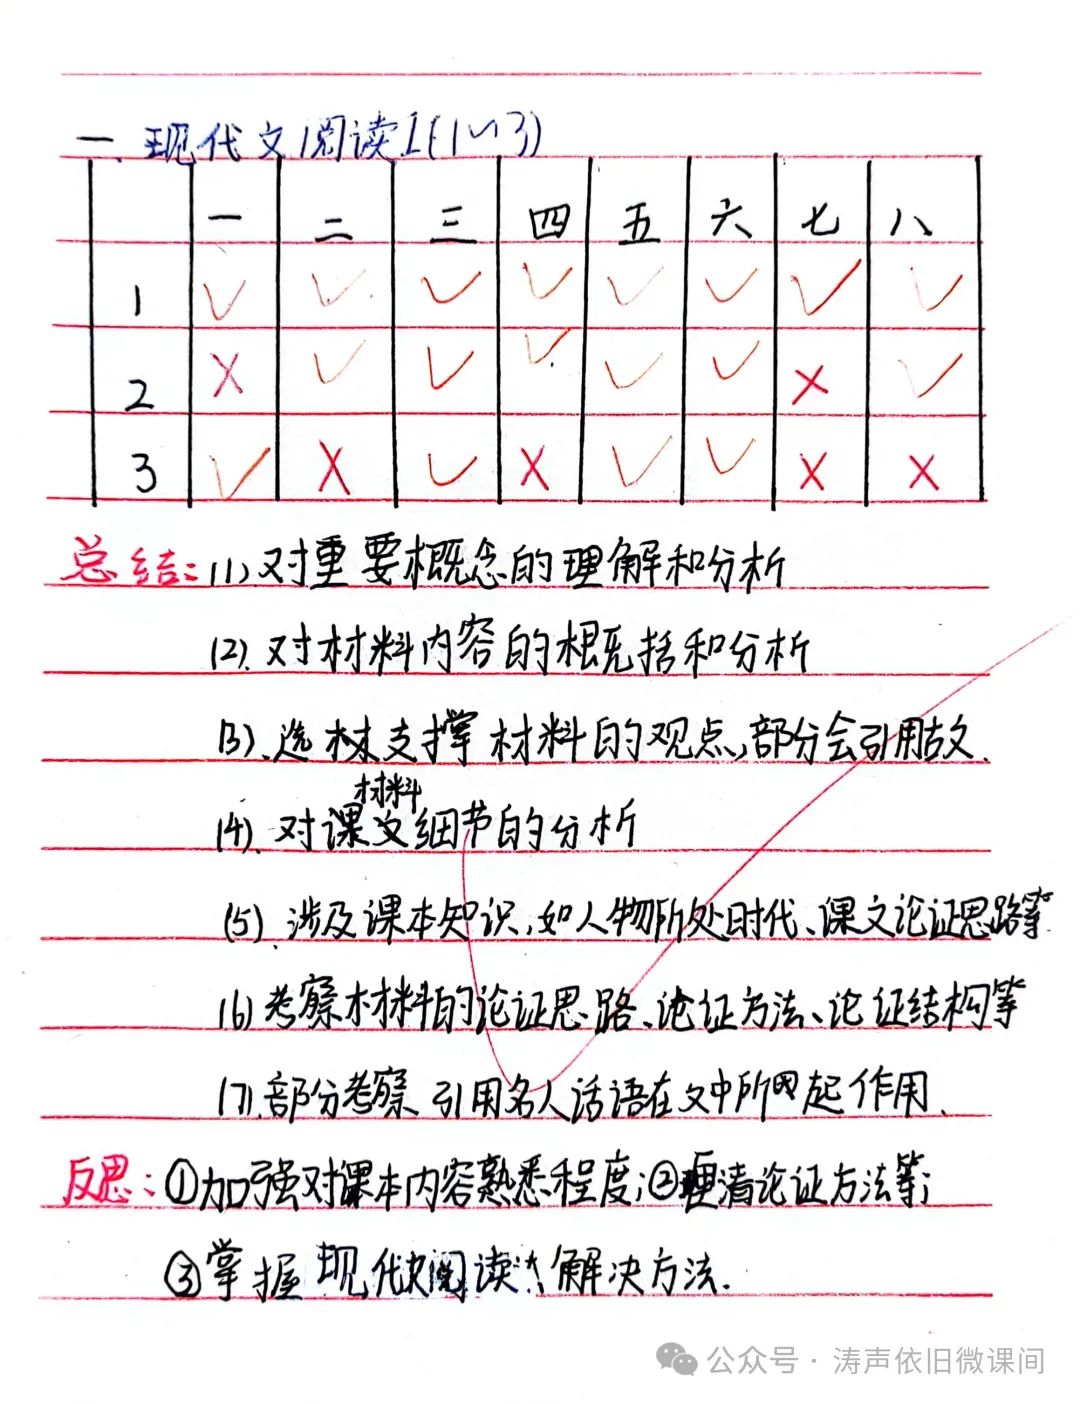 一、现代文阅读I(1~3)
一 二 三 四 五 六 七 八
1 ✓ ✓ ✓ ✓ ✓ ✓ ✓ ✓
2 × ✓ ✓ ✓ ✓ ✓ × ✓
3 ✓ × ✓ × ✓ ✓ × ×
总结:(1)对重要概念的理解和分析
(2).对材料内容的概括和分析
(3).选材支撑材料的观点,部分会引用故文.
材料
(4).对课文细节的分析
(5).涉及课本知识,如人物所处时代、课文论证思路等
(6)考察材料的论证思路、论证方法、论证结构等
(7).部分考察引用名人话语在文中所起作用.
反思:①加强对课本内容熟悉程度;②理清论证方法等;
③掌握现代文阅读解决方法.
公众号·涛声依旧微课间